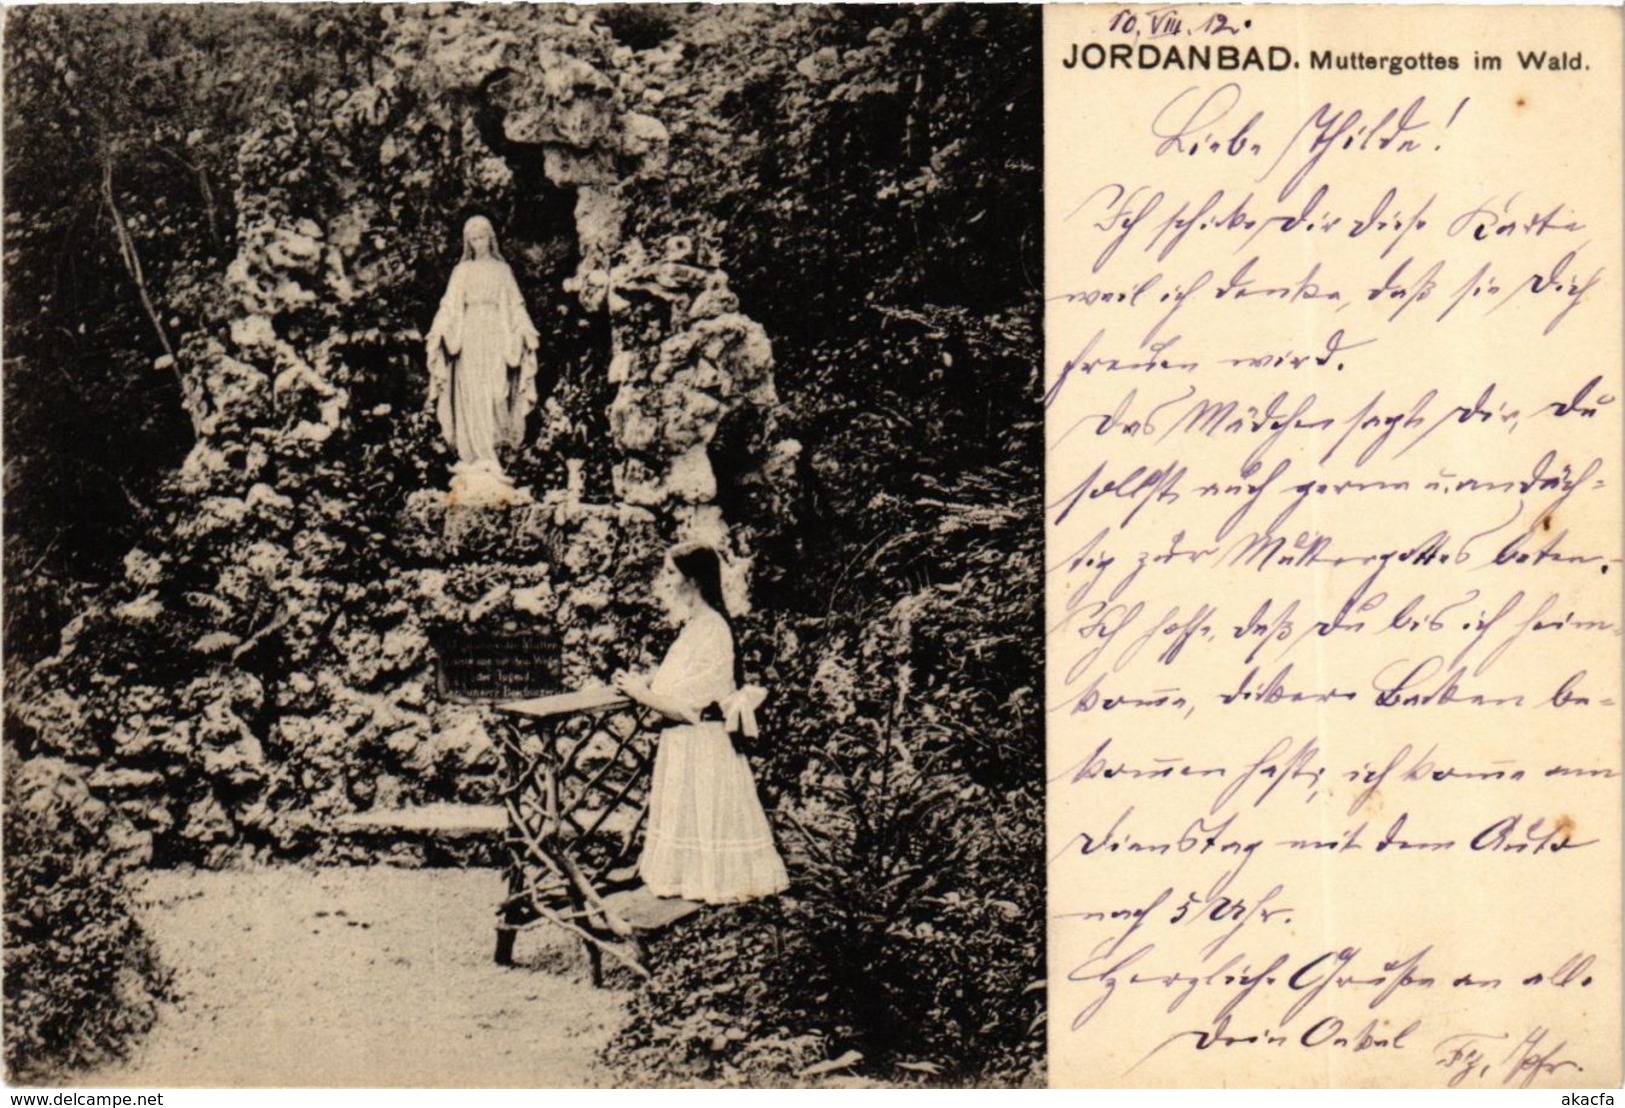 10. VIII. 12.
JORDANBAD. Muttergottes im Wald.
Liebe Thilde!
Ich schicke Dir diese Karte,
weil ich denke, daß sie Dich
freuen wird.
Das Mädchen sagt Dir, Du
sollst auch gerne u. andäch=
tig zur Muttergottes beten.
Ich hoffe, daß Du bis ich heim=
kom̄e, dickere Backen be=
kom̄en hast; ich kom̄e am
Dienstag mit dem Auto
nach 5 Uhr.
Herzliche Grüße an alle
Dein Onkel
der Jugend
www.delcampe.net
akacfa